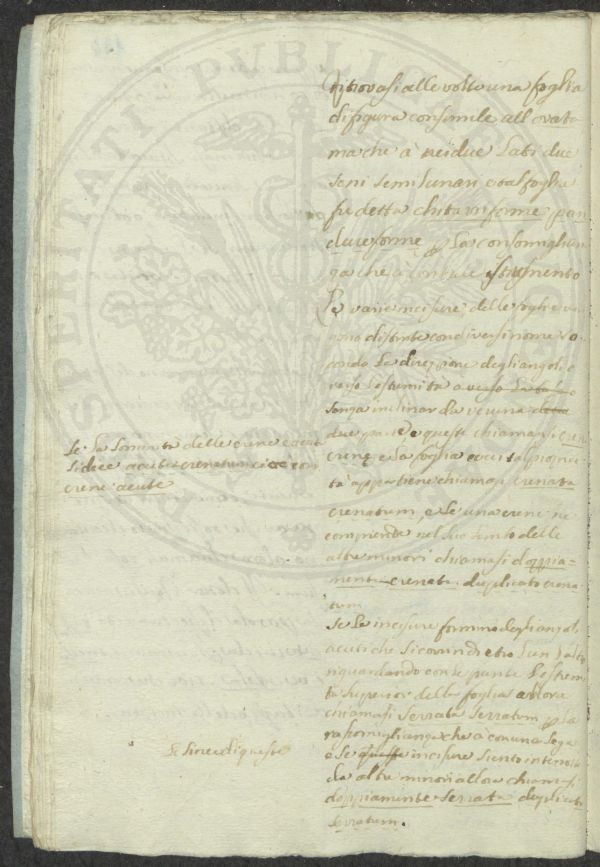 Ritrovasi alle volte una foglia
di figura consimile all ovata
ma che à nei due Lati due
seni semilunari e tal foglia
fu detta chitariforme pan
dureforme p La consomiglian
za che à con tale istrumento
Le varie incisure delle foglie ven
gono distinte con diversi nomi se
condo La direzione degli angoli, o
verso L'estremita
senza inclinar da veruna
due parte e queste chiamansi cren
crene e La foglia a cui tal proprie
tà appartiene chiamasi crenata
crenatum, e se una crena ne
comprende nel suo lembo delle
altre minori chiamasi doppia=
mente crenata duplicato crena
tum
Se Le incisure formino degli angoli
acuti che si corrin dietro L'un l'altro
riguardando con le punte L'estremi
ta superior della foglia allora
chiamasi serrata serratum p La
rassomiglianza che à con una sega
e se queste incisure siento interrotte
da altre minori allora chiamasi
doppiamente serrata duplicato
serratum.
Se La sommità delle crene è acuta
si dice acute crenatum con
crene acute
Se Sincedi queste
SPERITATI PUBLICAE